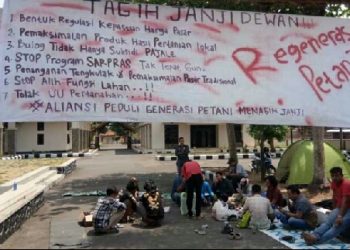 TAGIH JANJI DEWAN!!
1 Bentuk Regulasi Kepastian Harga Pasar
2. Pemaksimalan Produk Hasil Pertanian Lokal
3. Buing Tidak Harga Subsidi PAJALE
4. STOP Program SARPRAS Tak Tepat Guna
5. Penanganan Tengkulak & Pemaksimalan Pasar Tradisional
6. Stop Alih Fungsi Lahan...!!
7. Tolak UU Pertanahan...!!
ALIANSI PEDULI GENERASI PETANI MENAGIH JANJI
Regenerasi
Petani